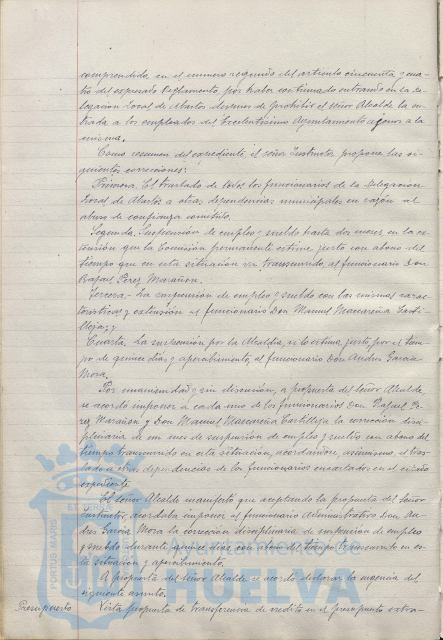 comprendida en el numero segundo del articulo cincuenta y cua-
tro del expresado Reglamento, por haber continuado entrando en la De-
legacion Local de Abastos despues de prohibir el señor Alcalde la en-
trada a los empleados del Excelentisimo Ayuntamiento ajenos a la
misma.
Como resumen del expediente el señor Instructor propone las si-
guientes correcciones:
Primera. El traslado de todos los funcionarios de la Delegacion
Local de Abastos a otras dependencias municipales en razon al
abuso de confianza cometido.
Segunda. Suspension de empleo y sueldo hasta dos meses en la ex-
tension que la Comision permanente estime justo con abono del
tiempo que en esta situación va transcurrido, al funcionario Don
Rafael Perez Marañon.
Tercera. La suspension de empleo y sueldo con las mismas carac-
teristicas y extension al funcionario Don Manuel Mascareña Casti-
lleja; y
Cuarta. La suspension por la Alcaldia, si lo estima justo por el tiem-
po de quince dias y apercibimiento, al funcionario Don Andres Garcia
Mora.
Por unanimidad y sin discusion, a propuesta del señor Alcalde,
se acordó imponer a cada uno de los funcionarios Don Rafael Pe-
rez Marañon y Don Manuel Mascareña Castilleja la corrección disci-
plinaria de un mes de suspension de empleo y sueldo con abono del
tiempo transcurrido en esta situacion, acordandose, asimismo, el tras-
lado a otras dependencias de los funcionarios encartados en el citado
expediente.
El señor Alcalde manifestó que aceptando la propuesta del Señor
Instructor, acordaba imponer al funcionario Administrativo Don An-
drés Garcia Mora la corrección disciplinaria de suspension de empleo
y sueldo durante quince dias con abono del tiempo transcurrido en es-
ta situacion y apercibimiento.
A propuesta del señor Alcalde se acordó declarar la urgencia del
siguiente asunto.
Presupuesto Vista propuesta de transferencia de credito en el presupuesto extra-
PORTUS MARIS
Ayuntamiento de
HUELVA